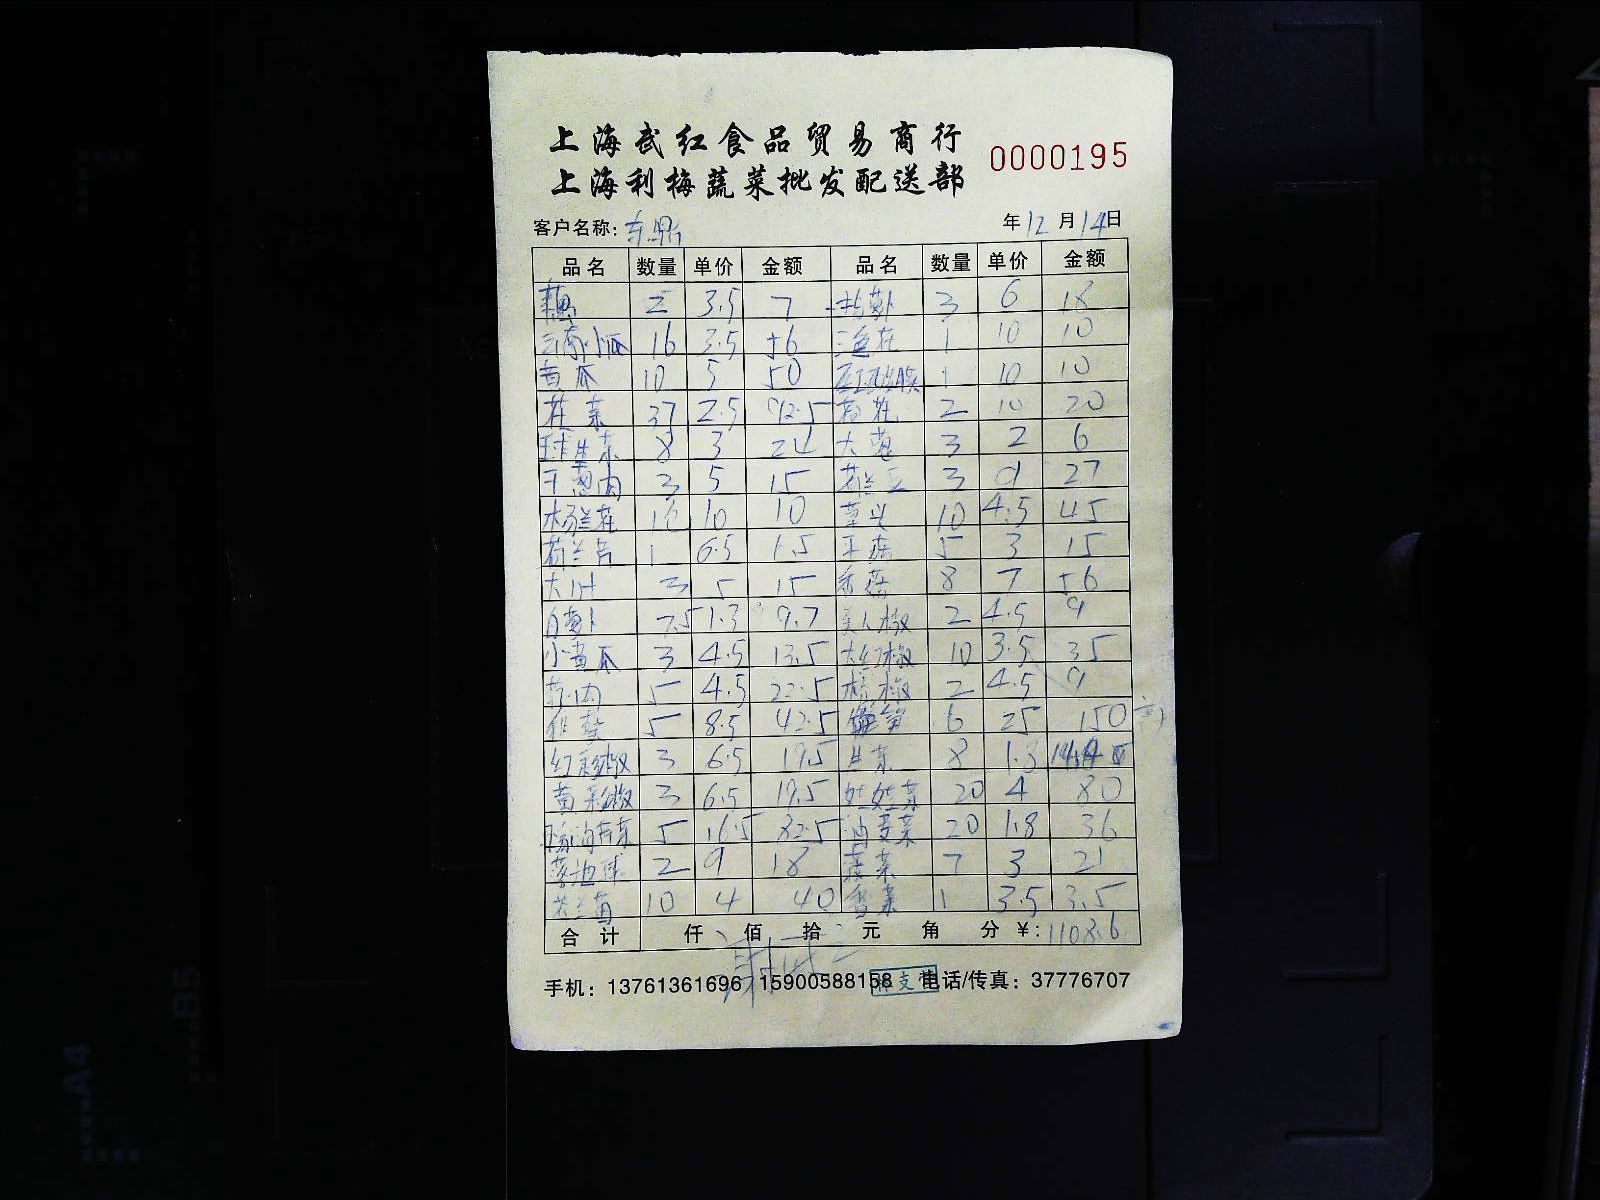 上海武红食品贸易商行
上海利梅蔬菜批发配送部
0000195
客户名称: 年12月14日
品名 数量 单价 金额 品名 数量 单价 金额
藕 2 3.5 7 萝卜 3 6 18
16 3.5 56 1 10 10
黄瓜 10 5 50 1 10 10
菜 37 2.5 92.5 2 10 20
球生菜 8 3 24 大葱 3 2 6
3 5 15 荷兰豆 3 9 27
10 10 草头 10 4.5 45
荷兰芹 1 6.5 6.5 平菇 5 3 15
大叶 3 5 15 香菇 8 7 56
白萝卜 7.5 1.3 9.7 美人椒 2 4.5 9
小黄瓜 3 4.5 13.5 大红椒 10 3.5 35
5 4.5 22.5 椒 2 4.5 9
5 8.5 42.5 笋 6 25 150
红彩椒 3 6.5 19.5 生菜 8 1.3
黄彩椒 3 6.5 19.5 娃娃菜 20 4 80
5 16.5 82.5 油麦菜 20 1.8 36
2 9 18 菠菜 7 3 21
10 4 40 香菜 1 3.5 3.5
合计 仟 佰 拾 元 角 分 ¥: 1108.6
手机: 13761361696 15900588158 电话/传真: 37776707